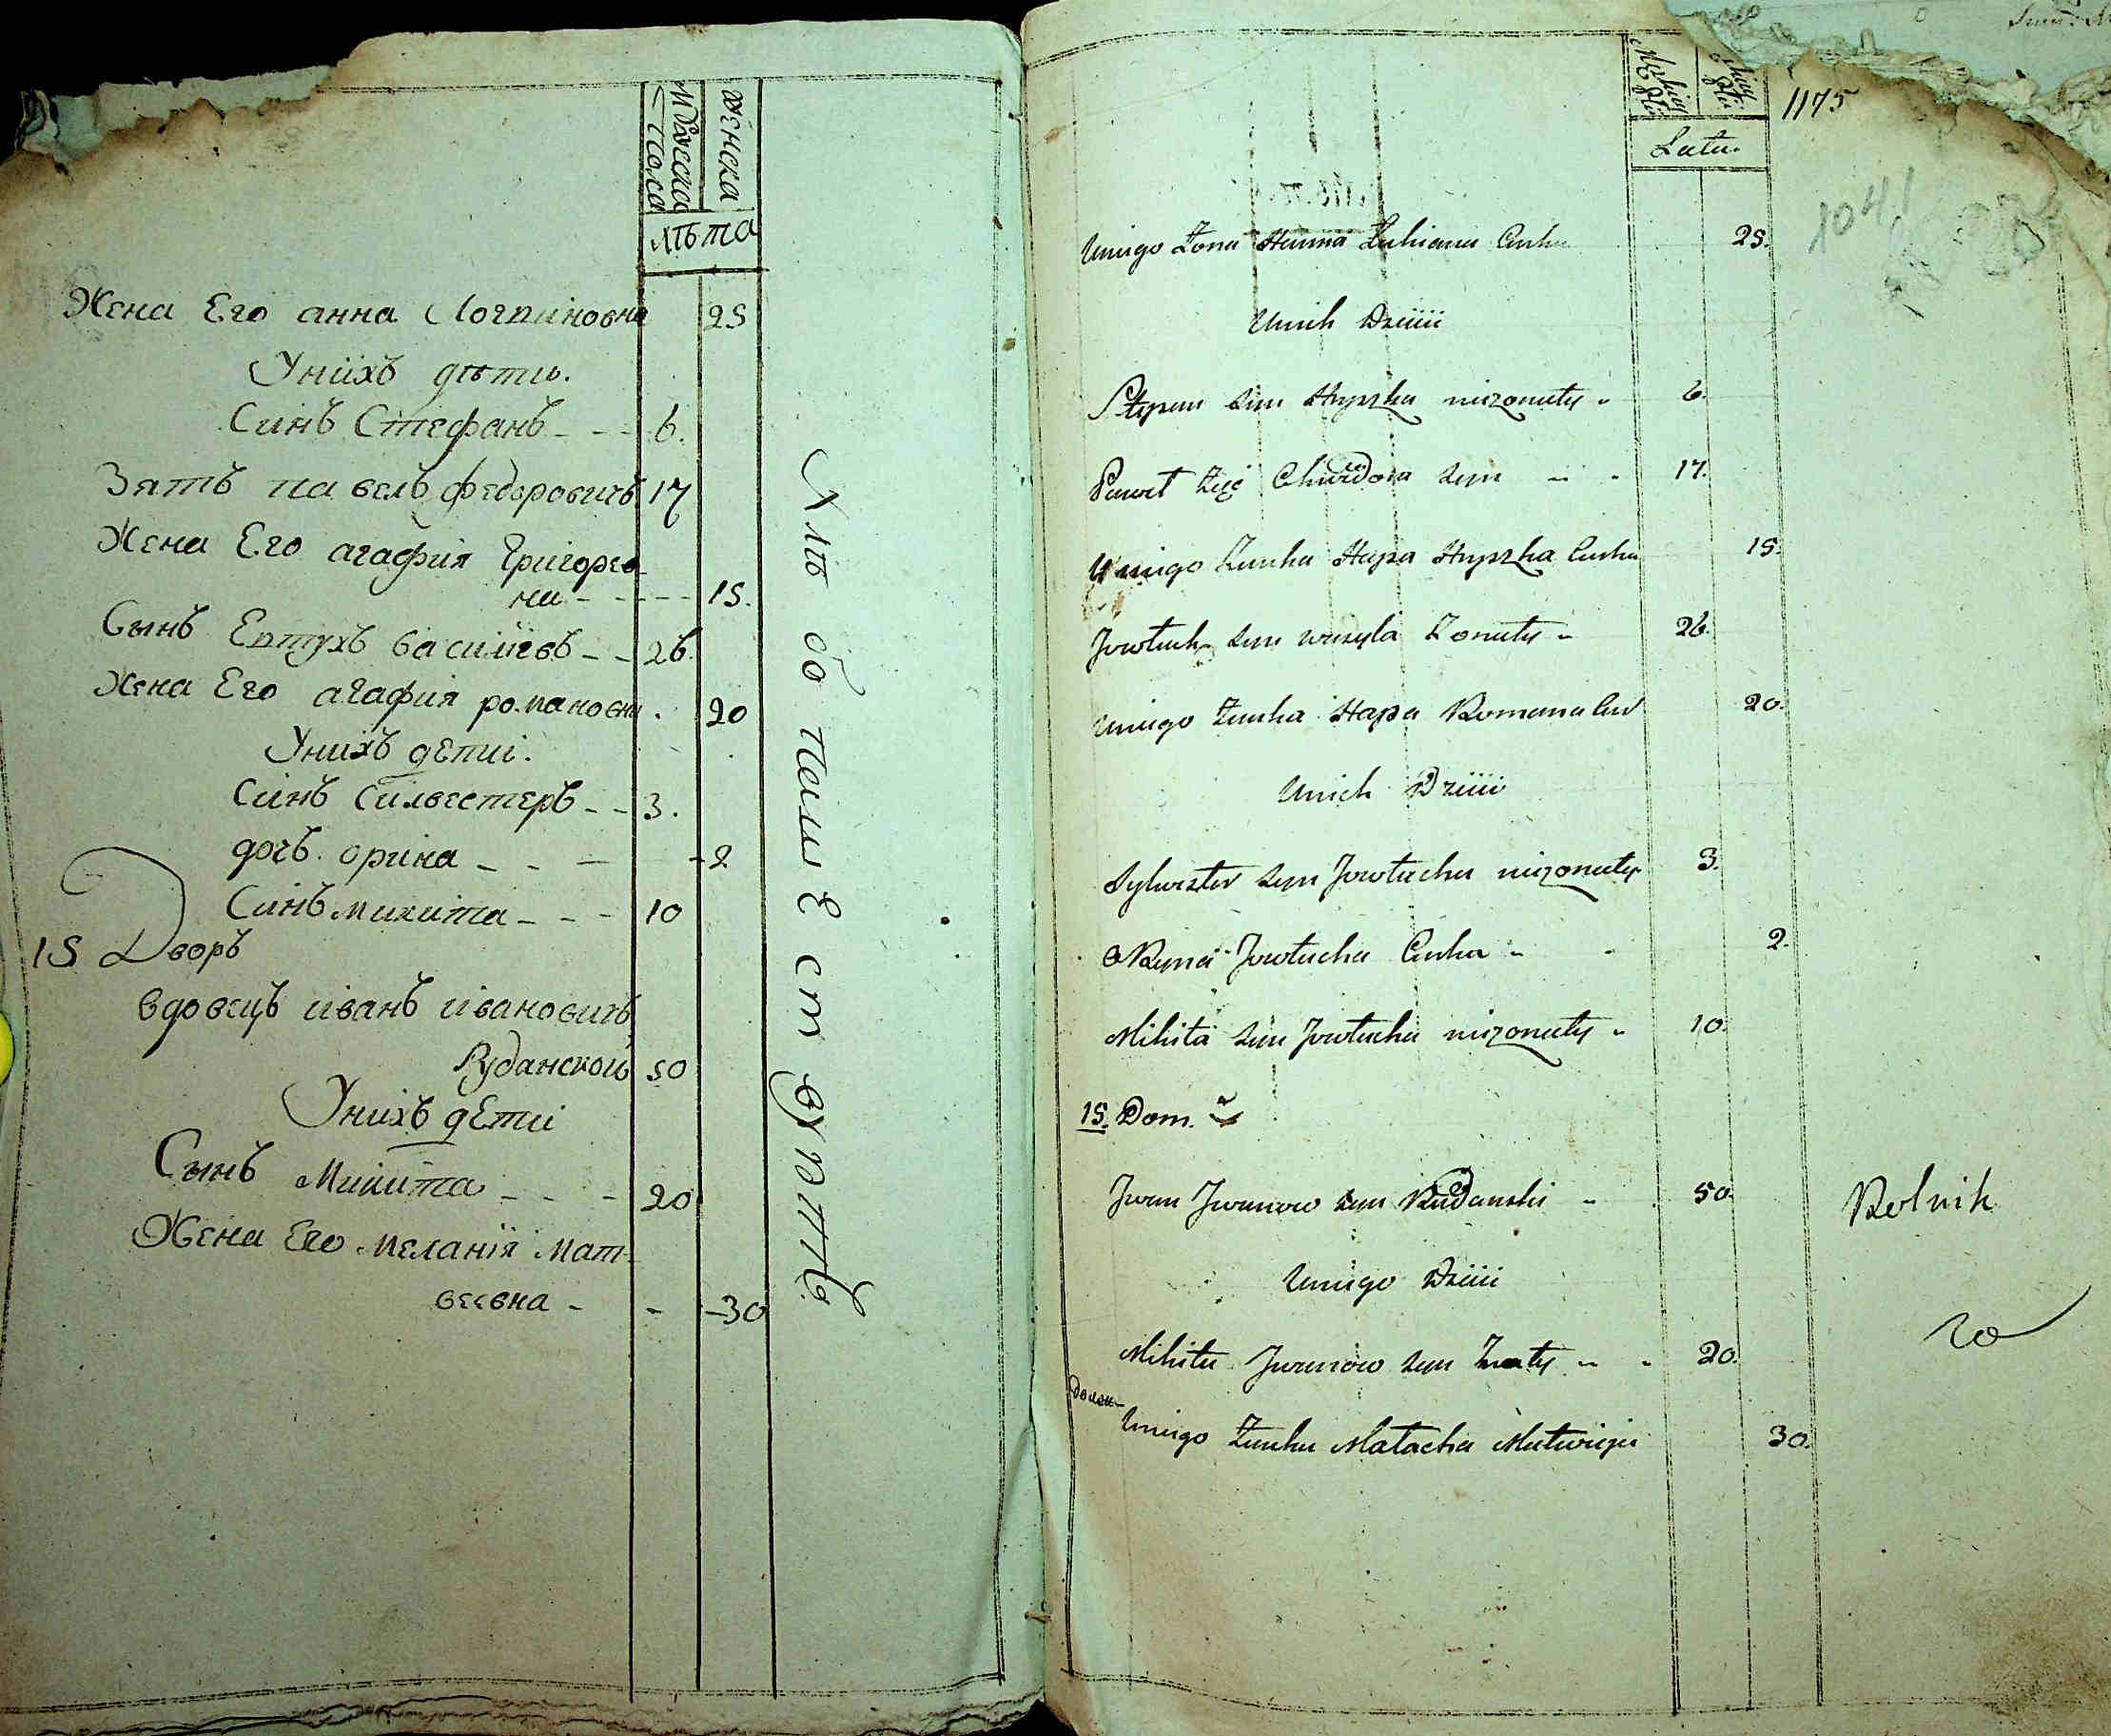 женска
лѣта
Жена Его анна Логвиновна 25
Унихъ дѣти.
Синъ Стефанъ - - 6.
Зять павелъ федоровичъ 17
Жена Его агафия Григорев
на - - - - 15.
Сынъ Евтухъ василиевъ - - 26.
Жена Его агафия романовна . 20
Унихъ дЕти.
Синъ Силвестеръ - - 3.
дочъ. орина - - - 2
Синъ микита - - - 10
15 Дворъ
вдовецъ иванъ ивановичъ
Руданской 50
Унихъ дЕти
Сынъ Микита - - - 20
Жена Его меланія Мат
веевна - - -30
Хлѣбопашествуютъ.
1175
Latu.
1041
Uniego Zona Hanna Luhiana Curka 25.
Unich Dzieii
Stepan syn Hryszka niezonaty 6.
Pawel Zięć Chwedora syn 17.
Uniego Zunka Hapa Hryszka Curka 15.
Jowtuch syn wasyla Zonaty 26.
Uniego Zunka Hapa Romana Cur 20.
Unich Dzieii
Sylwester syn Jowtucha niezonaty 3.
Oryna Jowtucha Curka 2.
Mikita syn Jowtucha niezonaty 10.
15. Dom.
Jwan Jwanow syn Rudanski 50. Rolnik
Uniego Dzieii
Mikita Jwanow syn Zonaty 20.
Uniego Zunka Matacha Matwieja 30.